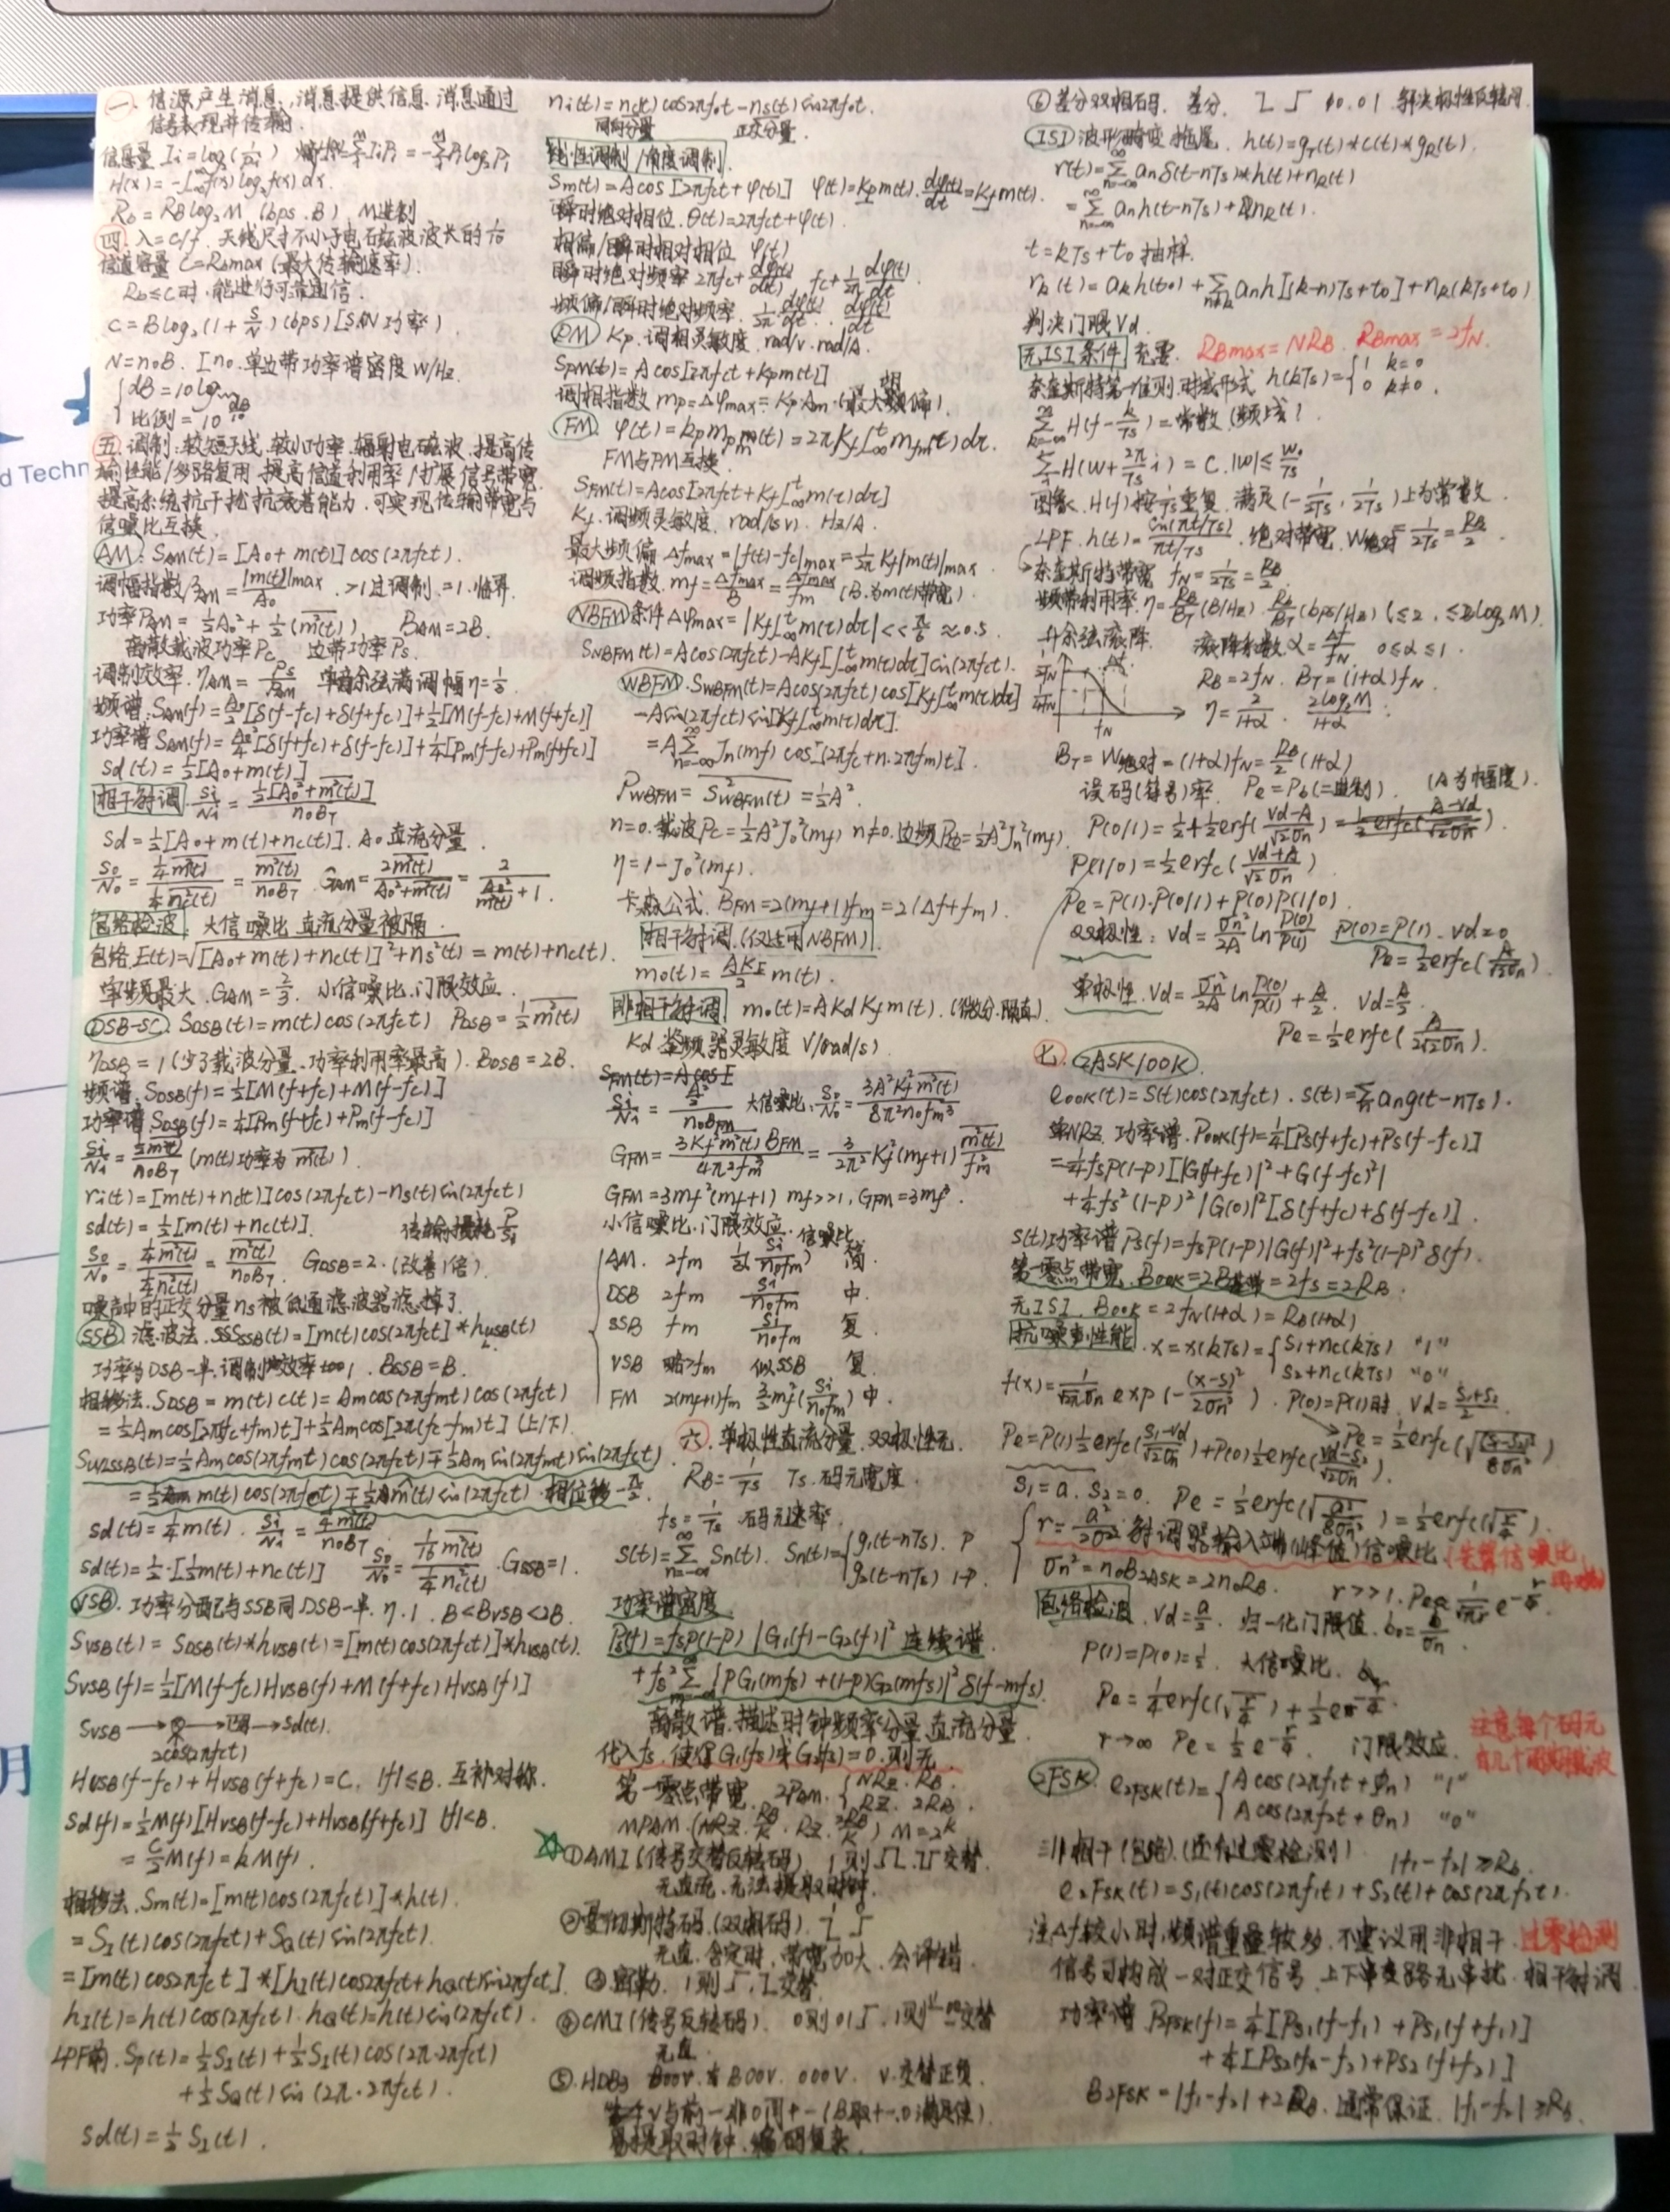 一. 信源产生消息, 消息提供信息, 消息通过
信号表现并传输.
信息量 Ii = log(1/pi)
H(x) = -∫f(x) log₂f(x) dx.
Rb = RB log₂M (bps. B) M进制
四. λ = c/f. 天线尺寸不小于电磁波波长的1/10
信道容量 C = Rbmax (最大传输速率).
Rb ≤ C时, 能进行可靠通信.
C = Blog₂(1 + S/N) (bps) [S.N 功率]
N = n₀B. [n₀. 单边带功率谱密度 W/Hz.
dB = 10 log
比例 = 10^(dB/10)
五. 调制: 较短天线, 较小功率, 辐射电磁波. 提高传
输性能/多路复用, 提高信道利用率/扩展信号带宽
提高系统抗干扰抗衰落能力, 可实现传输带宽与
信噪比互换.
AM: SAM(t) = [A₀ + m(t)] cos(2πfct).
调幅指数 βAM = |m(t)|max / A₀. >1过调制. =1. 临界.
功率PAM = ½A₀² + ½(m²(t)) BAM = 2B.
离散载波功率Pc 边带功率Ps.
调制效率. ηAM = Ps/PAM 单音余弦满调幅 η = 1/3.
频谱: SAM(f) = A₀/2 [δ(f-fc) + δ(f+fc)] + ½[M(f-fc) + M(f+fc)]
功率谱 SAM(f) = A₀²/4 [δ(f+fc) + δ(f-fc)] + ¼[Pm(f-fc) + Pm(f+fc)]
sd(t) = ½[A₀ + m(t)]
相干解调 Si/Ni = ½[A₀² + m²(t)] / n₀BT
sd = ½[A₀ + m(t) + nc(t)]. A₀直流分量.
S₀/N₀ = ¼m²(t) / ¼nc²(t) = m²(t)/n₀BT. GAM = 2m²(t) / (A₀² + m²(t)) = 2 / (A₀²/m²(t) + 1).
包络检波. 大信噪比, 直流分量被隔
包络. E(t) = √([A₀ + m(t) + nc(t)]² + ns²(t)) = m(t) + nc(t).
单频最大. GAM = 2/3. 小信噪比. 门限效应.
DSB-SC. SDSB(t) = m(t) cos(2πfct) PDSB = ½m²(t)
ηDSB = 1 (少了载波分量, 功率利用率最高). BDSB = 2B.
频谱: SDSB(f) = ½[M(f+fc) + M(f-fc)]
功率谱. SDSB(f) = ¼[Pm(f+fc) + Pm(f-fc)]
Si/Ni = ½m²(t) / n₀BT (m(t)功率为 m²(t)).
ri(t) = [m(t) + nc(t)] cos(2πfct) - ns(t) sin(2πfct)
sd(t) = ½[m(t) + nc(t)].
S₀/N₀ = ¼m²(t) / ¼nc²(t) = m²(t)/n₀BT. GDSB = 2. (改善1倍).
噪声中的正交分量ns被低通滤波器滤掉了.
SSB 滤波法. SSSB(t) = [m(t) cos(2πfct)] * hUSB(t)
功率为DSB一半. 调制效率1. BSSB = B.
相移法. SDSB = m(t) c(t) = Am cos(2πfmt) cos(2πfct)
= ½Am cos[2π(fc+fm)t] + ½Am cos[2π(fc-fm)t] (上/下).
SU/LSSB(t) = ½Am cos(2πfmt) cos(2πfct) ∓ ½Am sin(2πfmt) sin(2πfct).
= ½ m(t) cos(2πfct) ∓ ½ m̂(t) sin(2πfct). 相位移 -π/2.
sd(t) = ¼m(t). Si/Ni = ¼m²(t) / n₀BT
sd(t) = ½·[½m(t) + nc(t)] S₀/N₀ = 1/16 m²(t) / ¼nc²(t). GSSB = 1.
VSB. 功率分配与SSB同, DSB一半. η. 1. B < BVSB < 2B.
SVSB(t) = SDSB(t) * hVSB(t) = [m(t) cos(2πfct)] * hVSB(t).
SVSB(f) = ½[M(f-fc) HVSB(f) + M(f+fc) HVSB(f)]
SVSB → ⊗ → → sd(t).
2cos(2πfct)
HVSB(f-fc) + HVSB(f+fc) = C. |f| ≤ B. 互补对称.
Sd(f) = ½M(f)[HVSB(f-fc) + HVSB(f+fc)] |f|<B.
= C/2 M(f) = kM(f).
相移法. Sm(t) = [m(t) cos(2πfct)] * h(t).
= SI(t) cos(2πfct) + SQ(t) sin(2πfct).
= [m(t) cos2πfct] * [hI(t) cos2πfct + hQ(t) sin2πfct].
hI(t) = h(t) cos(2πfct). hQ(t) = h(t) sin(2πfct).
LPF前. Sp(t) = ½SI(t) + ½SI(t) cos(2π·2πfct)
+ ½SQ(t) sin(2π·2πfct).
sd(t) = ½SI(t).
ni(t) = nc(t) cos2πf₀t - ns(t) sin2πf₀t.
同向分量 正交分量.
线性调制 / 角度调制.
Sm(t) = A cos[2πfct + φ(t)] φ(t) = Kp m(t). dφ(t)/dt = Kf m(t).
瞬时绝对相位. θ(t) = 2πfct + φ(t).
相偏/瞬时相对相位 φ(t)
瞬时绝对频率 2πfc + dφ(t)/dt fc + 1/2π dφ(t)/dt
频偏/瞬时绝对频率. 1/2π dφ(t)/dt. dφ(t)/dt
PM Kp. 调相灵敏度. rad/v. rad/A.
SPM(t) = A cos[2πfct + Kp m(t)]
调相指数 mp = Δφmax = Kp·Am (最大相偏).
FM. φ(t) = kp mpm(t) = 2πKf∫mfm(τ)dτ.
FM与PM互换.
SFM(t) = A cos[2πfct + Kf∫m(τ)dτ]
Kf. 调频灵敏度. rad/(s·v). Hz/A.
最大频偏 Δfmax = |f(t) - fc|max = 1/2π Kf|m(t)|max.
调频指数. mf = Δfmax/B = Δfmax/fm (B. 为m(t)带宽).
NBFM 条件 Δφmax = |Kf∫m(τ)dτ| << π/6 ≈ 0.5.
SNBFM(t) = A cos(2πfct) - AKf[∫m(τ)dτ] sin(2πfct).
WBFM. SWBFM(t) = A cos(2πfct) cos[Kf∫m(τ)dτ]
- A sin(2πfct) sin[Kf∫m(τ)dτ].
= AΣ Jn(mf) cos[(2πfc + n·2πfm)t].
PWBFM = S²WBFM(t) = ½A².
n=0. 载波Pc = ½A²J₀²(mf) n≠0. 边频 = ½A²Jn²(mf).
η = 1 - J₀²(mf).
卡森公式. BFM = 2(mf+1)fm = 2(Δf+fm).
相干解调. (仅适用NBFM).
m₀(t) = AKF/2 m(t).
非相干解调 m₀(t) = A Kd Kf m(t). (微分. 隔直).
Kd 鉴频器灵敏度 V/(rad/s)
SFM(t) = A cos[
Si/Ni = (A²/2) / n₀BFM 大信噪比: S₀/N₀ = 3A²Kf²m²(t) / 8π²n₀fm³
GFM = 3Kf²m²(t)BFM / 4π²fm³ = 3/2π² Kf²(mf+1) m²(t)/fm²
GFM = 3mf²(mf+1) mf>>1, GFM = 3mf³.
小信噪比. 门限效应. 信噪比.
AM. 2fm ⅓(Si/n₀fm) 简.
DSB 2fm Si/n₀fm 中.
SSB fm Si/n₀fm 复.
VSB 略>fm 似SSB 复.
FM 2(mf+1)fm 3/2 mf²(Si/n₀fm) 中.
六. 单极性直流分量. 双极性无.
RB = 1/Ts Ts. 码元宽度.
fs = 1/Ts 码元速率.
S(t) = Σ Sn(t). Sn(t) = { g₁(t-nTs). P
g₂(t-nTs) 1-P.
功率谱密度
Ps(f) = fsP(1-P) |G₁(f) - G₂(f)|² 连续谱.
+ fs²Σ |PG₁(mfs) + (1-P)G₂(mfs)|² δ(f-mfs).
离散谱. 描述时钟频率分量, 直流分量
代入fs. 使得G₁(fs)或G₂(fs) = 0. 则无.
第一零点带宽. 2PAM. { NRZ. RB.
RZ. 2RB.
MPAM. (NRZ. RB/K. RZ. 2RB/K) M = 2^K
①AMI (信号交替反转码) 1则 交替.
无直流. 无法提取时钟.
②曼彻斯特码. (双相码).
无直. 含定时, 带宽加大. 会译错.
③密勒. 1则 交替
④CMI (信号反转码). 0则01. 1则 交替
无直.
⑤. HDB₃ B00V. 000V. V. 交替正负.
易提取时钟. 编码复杂.
⑥差分双相码. 差分. 解决极性反转问
ISI 波形畸变, 拖尾. h(t) = gT(t) * c(t) * gR(t).
r(t) = Σ anδ(t-nTs) * h(t) + nR(t)
= Σ an h(t-nTs) + nR(t).
t = kTs + t₀ 抽样.
rk(t) = ak h(t₀) + Σ an h[(k-n)Ts + t₀] + nR(kTs+t₀)
判决门限 Vd.
无ISI条件 充要. RBmax = NRB. RBmax = 2fN.
奈奎斯特第一准则. 时域形式 h(kTs) = { 1 k=0
0 k≠0.
Σ H(f - k/Ts) = 常数 (频域)
Σ H(w + 2π/Ts i) = C. |w| ≤
图像. H(f) 按1/Ts重复. 满足 (-1/2Ts, 1/2Ts) 上为常数.
LPF. h(t) = sin(πt/Ts) / πt/Ts. 绝对带宽. W绝对 = 1/2Ts = RB/2.
奈奎斯特带宽 fN = 1/2Ts = RB/2.
频带利用率. η = RB/BT (B/Hz). Rb/BT (bps/Hz) (≤2, ≤2log₂M).
升余弦滚降. 滚降系数. α = Δf/fN. 0≤α≤1.
RB = 2fN. BT = (1+α)fN.
η = 2/(1+α). 2log₂M/(1+α).
fN
BT = W绝对 = (1+α)fN = RB/2 (1+α)
误码(符号)率. Pe = Pb (二进制). (A为幅度).
P(0/1) = ½ + ½erf(Vd-A / √2σn)
P(1/0) = ½erfc(Vd+A / √2σn)
Pe = P(1)·P(0/1) + P(0)P(1/0).
双极性: Vd = σn²/2A ln P(0)/P(1) P(0) = P(1). Vd = 0
Pe = ½erfc(A/√2σn).
单极性. Vd = σn²/2A ln P(0)/P(1) + A/2. Vd = A/2.
Pe = ½erfc(A / 2√2σn).
七. 2ASK/OOK.
eOOK(t) = S(t) cos(2πfct). s(t) = Σ an g(t-nTs).
单NRZ. 功率谱. POOK(f) = ¼[Ps(f+fc) + Ps(f-fc)]
= ¼fsP(1-P)[|G(f+fc)|² + G(f-fc)²|
+ ¼fs²(1-P)²|G(0)|²[δ(f+fc) + δ(f-fc)].
S(t)功率谱 Ps(f) = fsP(1-P)|G(f)|² + fs²(1-P)²δ(f).
第一零点带宽. BOOK = 2B基带 = 2fs = 2RB.
无ISI. BOOK = 2fN(1+α) = RB(1+α)
抗噪声性能. x = x(kTs) = { S₁ + nc(kTs) "1"
S₂ + nc(kTs) "0"
f(x) = 1/√2πσn exp(-(x-s)²/2σn²). P(0) = P(1)时. Vd = (S₁+S₂)/2.
Pe = P(1)½erfc(S₁-Vd / √2σn) + P(0)½erfc(Vd-S₂ / √2σn).
S₁ = a. S₂ = 0. Pe = ½erfc(√(a²/8σn²)) = ½erfc(√(r/4)).
r = a²/2σ². 解调器输入端(峰值)信噪比 (先算信噪比
σn² = n₀B2ASK = 2n₀RB. r>>1. Pe ≈ 1/√πr e^(-r/4).
包络检波. Vd = a/2. 归一化门限值. b₀ = b/σn.
P(1) = P(0) = ½. 大信噪比.
Pe = ¼erfc(√(r/4)) + ½e^(-r/4).
r→∞ Pe = ½e^(-r/4). 门限效应.
注意每个码元
有几个周期载波
2FSK. e2FSK(t) = { A cos(2πf₁t + φn) "1"
A cos(2πf₂t + θn) "0"
非相干(包络). (还有过零检测) |f₁-f₂| ≥ Rb.
e2FSK(t) = S₁(t) cos(2πf₁t) + S₂(t) + cos(2πf₂t).
注Δf较小时, 频谱重叠较多. 不建议用非相干. 过零检测
信号可构成一对正交信号. 上下串支路无串扰. 相干解调.
功率谱 P2FSK(f) = ¼[Ps₁(f-f₁) + Ps₁(f+f₁)]
+ ¼[Ps₂(f-f₂) + Ps₂(f+f₂)]
B2FSK = |f₁-f₂| + 2RB. 通常保证. |f₁-f₂| ≥ Rb.
d Techn
月